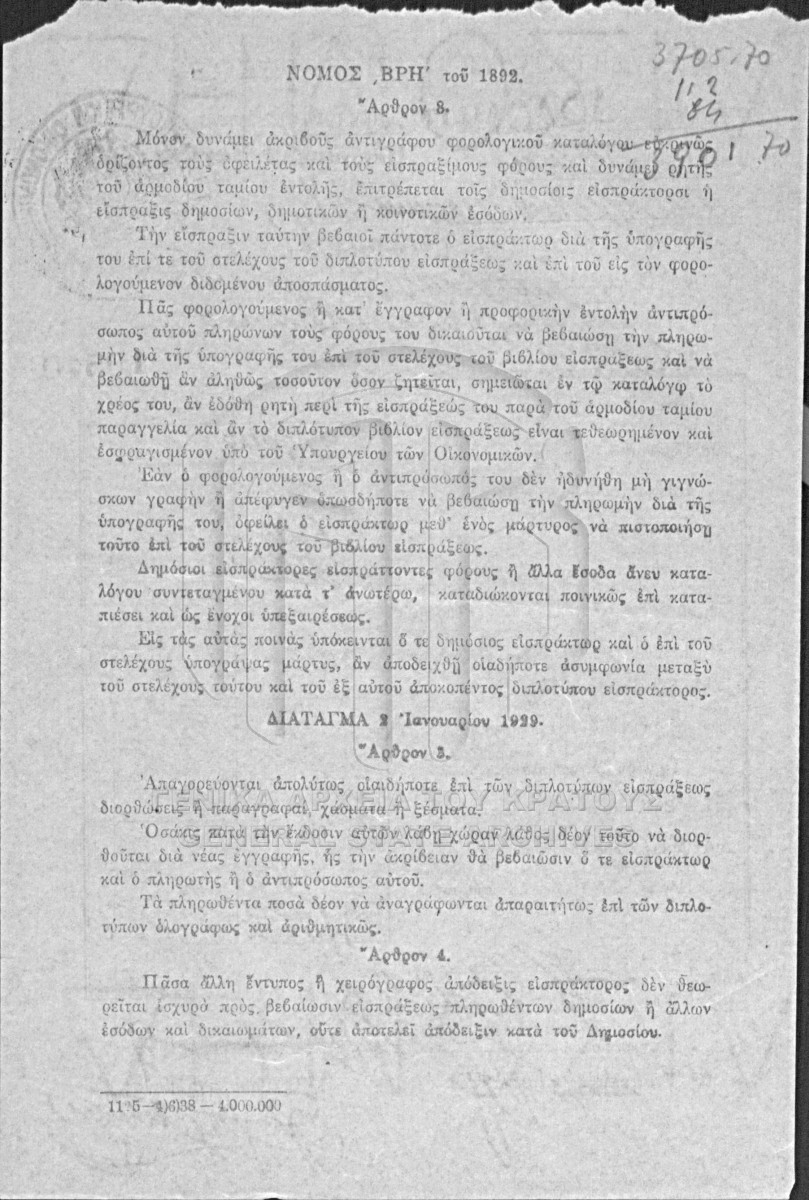 ΝΟΜΟΣ ͵ΒΡΗ΄ τοῦ 1892.
3705.70
112
84
3901.70
Ἄρθρον 8.
Μόνον δυνάμει ἀκριβοῦς ἀντιγράφου φορολογικοῦ καταλόγου εὐκρινῶς
ὁρίζοντος τοὺς ὀφειλέτας καὶ τοὺς εἰσπραξίμους φόρους καὶ δυνάμει ρητῆς
τοῦ ἁρμοδίου ταμίου ἐντολῆς, ἐπιτρέπεται τοῖς δημοσίοις εἰσπράκτορσι ἡ
εἴσπραξις δημοσίων, δημοτικῶν ἢ κοινοτικῶν ἐσόδων.
Τὴν εἴσπραξιν ταύτην βεβαιοῖ πάντοτε ὁ εἰσπράκτωρ διὰ τῆς ὑπογραφῆς
του ἐπί τε τοῦ στελέχους τοῦ διπλοτύπου εἰσπράξεως καὶ ἐπὶ τοῦ εἰς τὸν φορο-
λογούμενον διδομένου ἀποσπάσματος.
Πᾶς φορολογούμενος ἢ κατ' ἔγγραφον ἢ προφορικὴν ἐντολὴν ἀντιπρό-
σωπος αὐτοῦ πληρώνων τοὺς φόρους του δικαιοῦται νὰ βεβαιώσῃ τὴν πληρω-
μὴν διὰ τῆς ὑπογραφῆς του ἐπὶ τοῦ στελέχους τοῦ βιβλίου εἰσπράξεως καὶ νὰ
βεβαιωθῇ ἂν ἀληθῶς τοσοῦτον ὅσον ζητεῖται, σημειῶται ἐν τῷ καταλόγῳ τὸ
χρέος του, ἂν ἐδόθη ρητὴ περὶ τῆς εἰσπράξεώς του παρὰ τοῦ ἁρμοδίου ταμίου
παραγγελία καὶ ἂν τὸ διπλότυπον βιβλίον εἰσπράξεως εἶναι τεθεωρημένον καὶ
ἐσφραγισμένον ὑπὸ τοῦ Ὑπουργείου τῶν Οἰκονομικῶν.
Ἐὰν ὁ φορολογούμενος ἢ ὁ ἀντιπρόσωπός του δὲν ἠδυνήθη μὴ γιγνώ-
σκων γραφὴν ἢ ἀπέφυγεν ὁπωσδήποτε νὰ βεβαιώσῃ τὴν πληρωμὴν διὰ τῆς
ὑπογραφῆς του, ὀφείλει ὁ εἰσπράκτωρ μεθ' ἑνὸς μάρτυρος νὰ πιστοποιήσῃ
τοῦτο ἐπὶ τοῦ στελέχους τοῦ βιβλίου εἰσπράξεως.
Δημόσιοι εἰσπράκτορες εἰσπράττοντες φόρους ἢ ἄλλα ἔσοδα ἄνευ κατα-
λόγου συντεταγμένου κατὰ τ' ἀνωτέρω, καταδιώκονται ποινικῶς ἐπὶ κατα-
πιέσει καὶ ὡς ἔνοχοι ὑπεξαιρέσεως.
Εἰς τὰς αὐτὰς ποινὰς ὑπόκεινται ὅ τε δημόσιος εἰσπράκτωρ καὶ ὁ ἐπὶ τοῦ
στελέχους ὑπογράψας μάρτυς, ἂν ἀποδειχθῇ οἱαδήποτε ἀσυμφωνία μεταξὺ
τοῦ στελέχους τούτου καὶ τοῦ ἐξ αὐτοῦ ἀποκοπέντος διπλοτύπου εἰσπράκτορος.
ΔΙΑΤΑΓΜΑ 2 Ἰανουαρίου 1929.
Ἄρθρον 3.
Ἀπαγορεύονται ἀπολύτως οἱαιδήποτε ἐπὶ τῶν διπλοτύπων εἰσπράξεως
διορθώσεις ἢ παραγραφαί, χάσματα ἢ ξέσματα.
ΓΕΝΙΚΑ ΑΡΧΕΙΑ ΤΟΥ ΚΡΑΤΟΥΣ
Ὁσάκις κατὰ τὴν ἔκδοσιν αὐτῶν λάβῃ χώραν λάθος δέον τοῦτο νὰ διορ-
GENERAL STATE ARCHIVES
θοῦται διὰ νέας ἐγγραφῆς, ἧς τὴν ἀκρίβειαν θὰ βεβαιῶσιν ὅ τε εἰσπράκτωρ
καὶ ὁ πληρωτὴς ἢ ὁ ἀντιπρόσωπος αὐτοῦ.
Τὰ πληρωθέντα ποσὰ δέον νὰ ἀναγράφωνται ἀπαραιτήτως ἐπὶ τῶν διπλο-
τύπων ὁλογράφως καὶ ἀριθμητικῶς.
Ἄρθρον 4.
Πᾶσα ἄλλη ἔντυπος ἢ χειρόγραφος ἀπόδειξις εἰσπράκτορος δὲν θεω-
ρεῖται ἰσχυρὰ πρὸς βεβαίωσιν εἰσπράξεως πληρωθέντων δημοσίων ἢ ἄλλων
ἐσόδων καὶ δικαιωμάτων, οὔτε ἀποτελεῖ ἀπόδειξιν κατὰ τοῦ Δημοσίου.
4)6)38 — 4.000.000